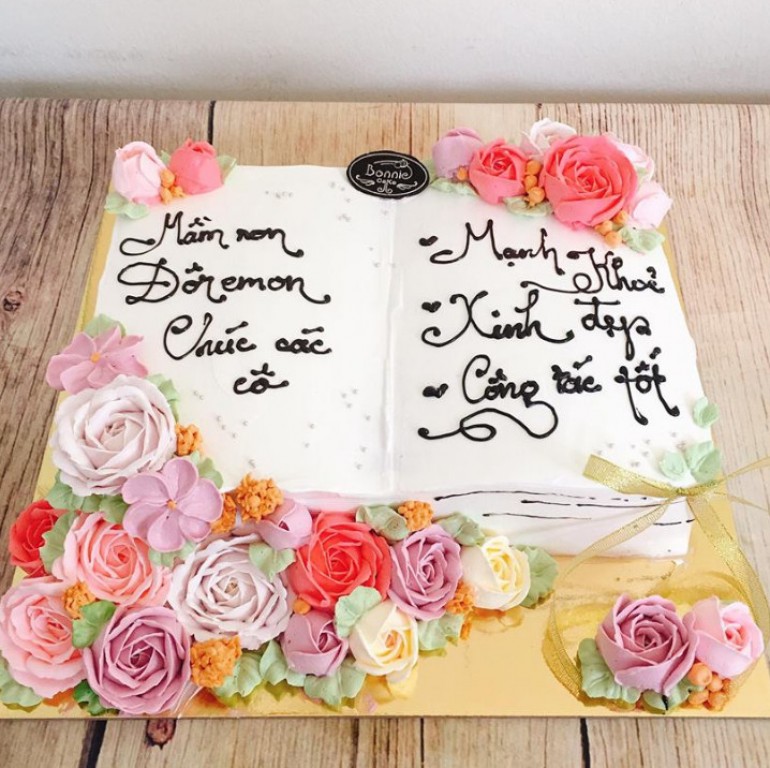 Bonnie
Cake
Mầm non
Đôremon
Chúc các
cô
Mạnh Khoẻ
Xinh đẹp
Công tác tốt